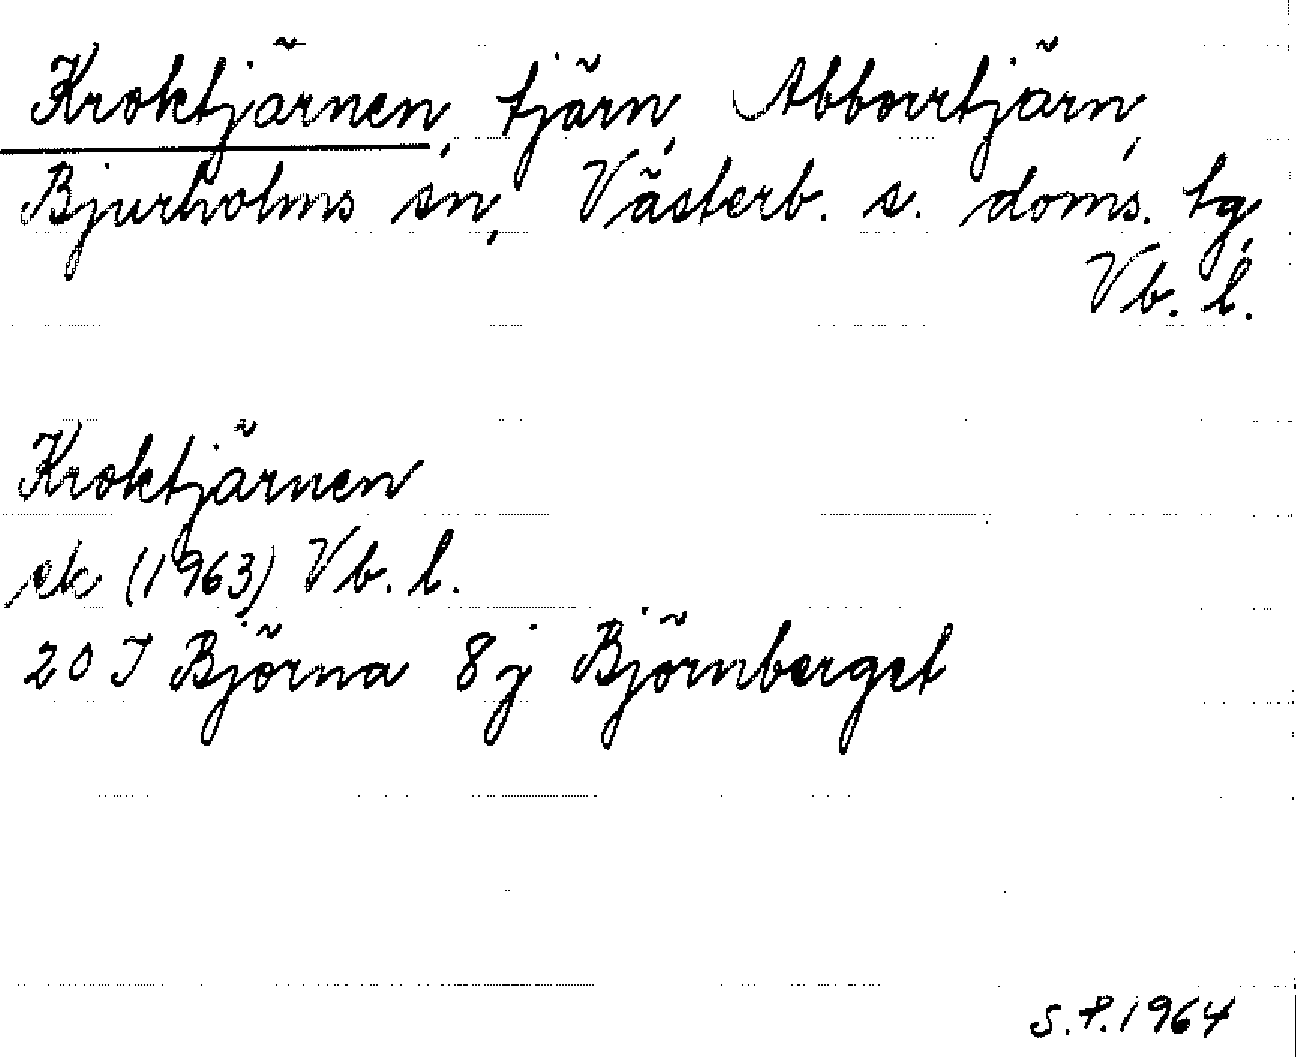 Kroktjärnen, tjärn, Abborrtjärn,
Bjurholms sn, Västerb. s. doms. tg,
Vb. l.
Kroktjärnen
ek (1963) Vb. l.
20 I Björna 8 j Björnberget
S.P. 1964